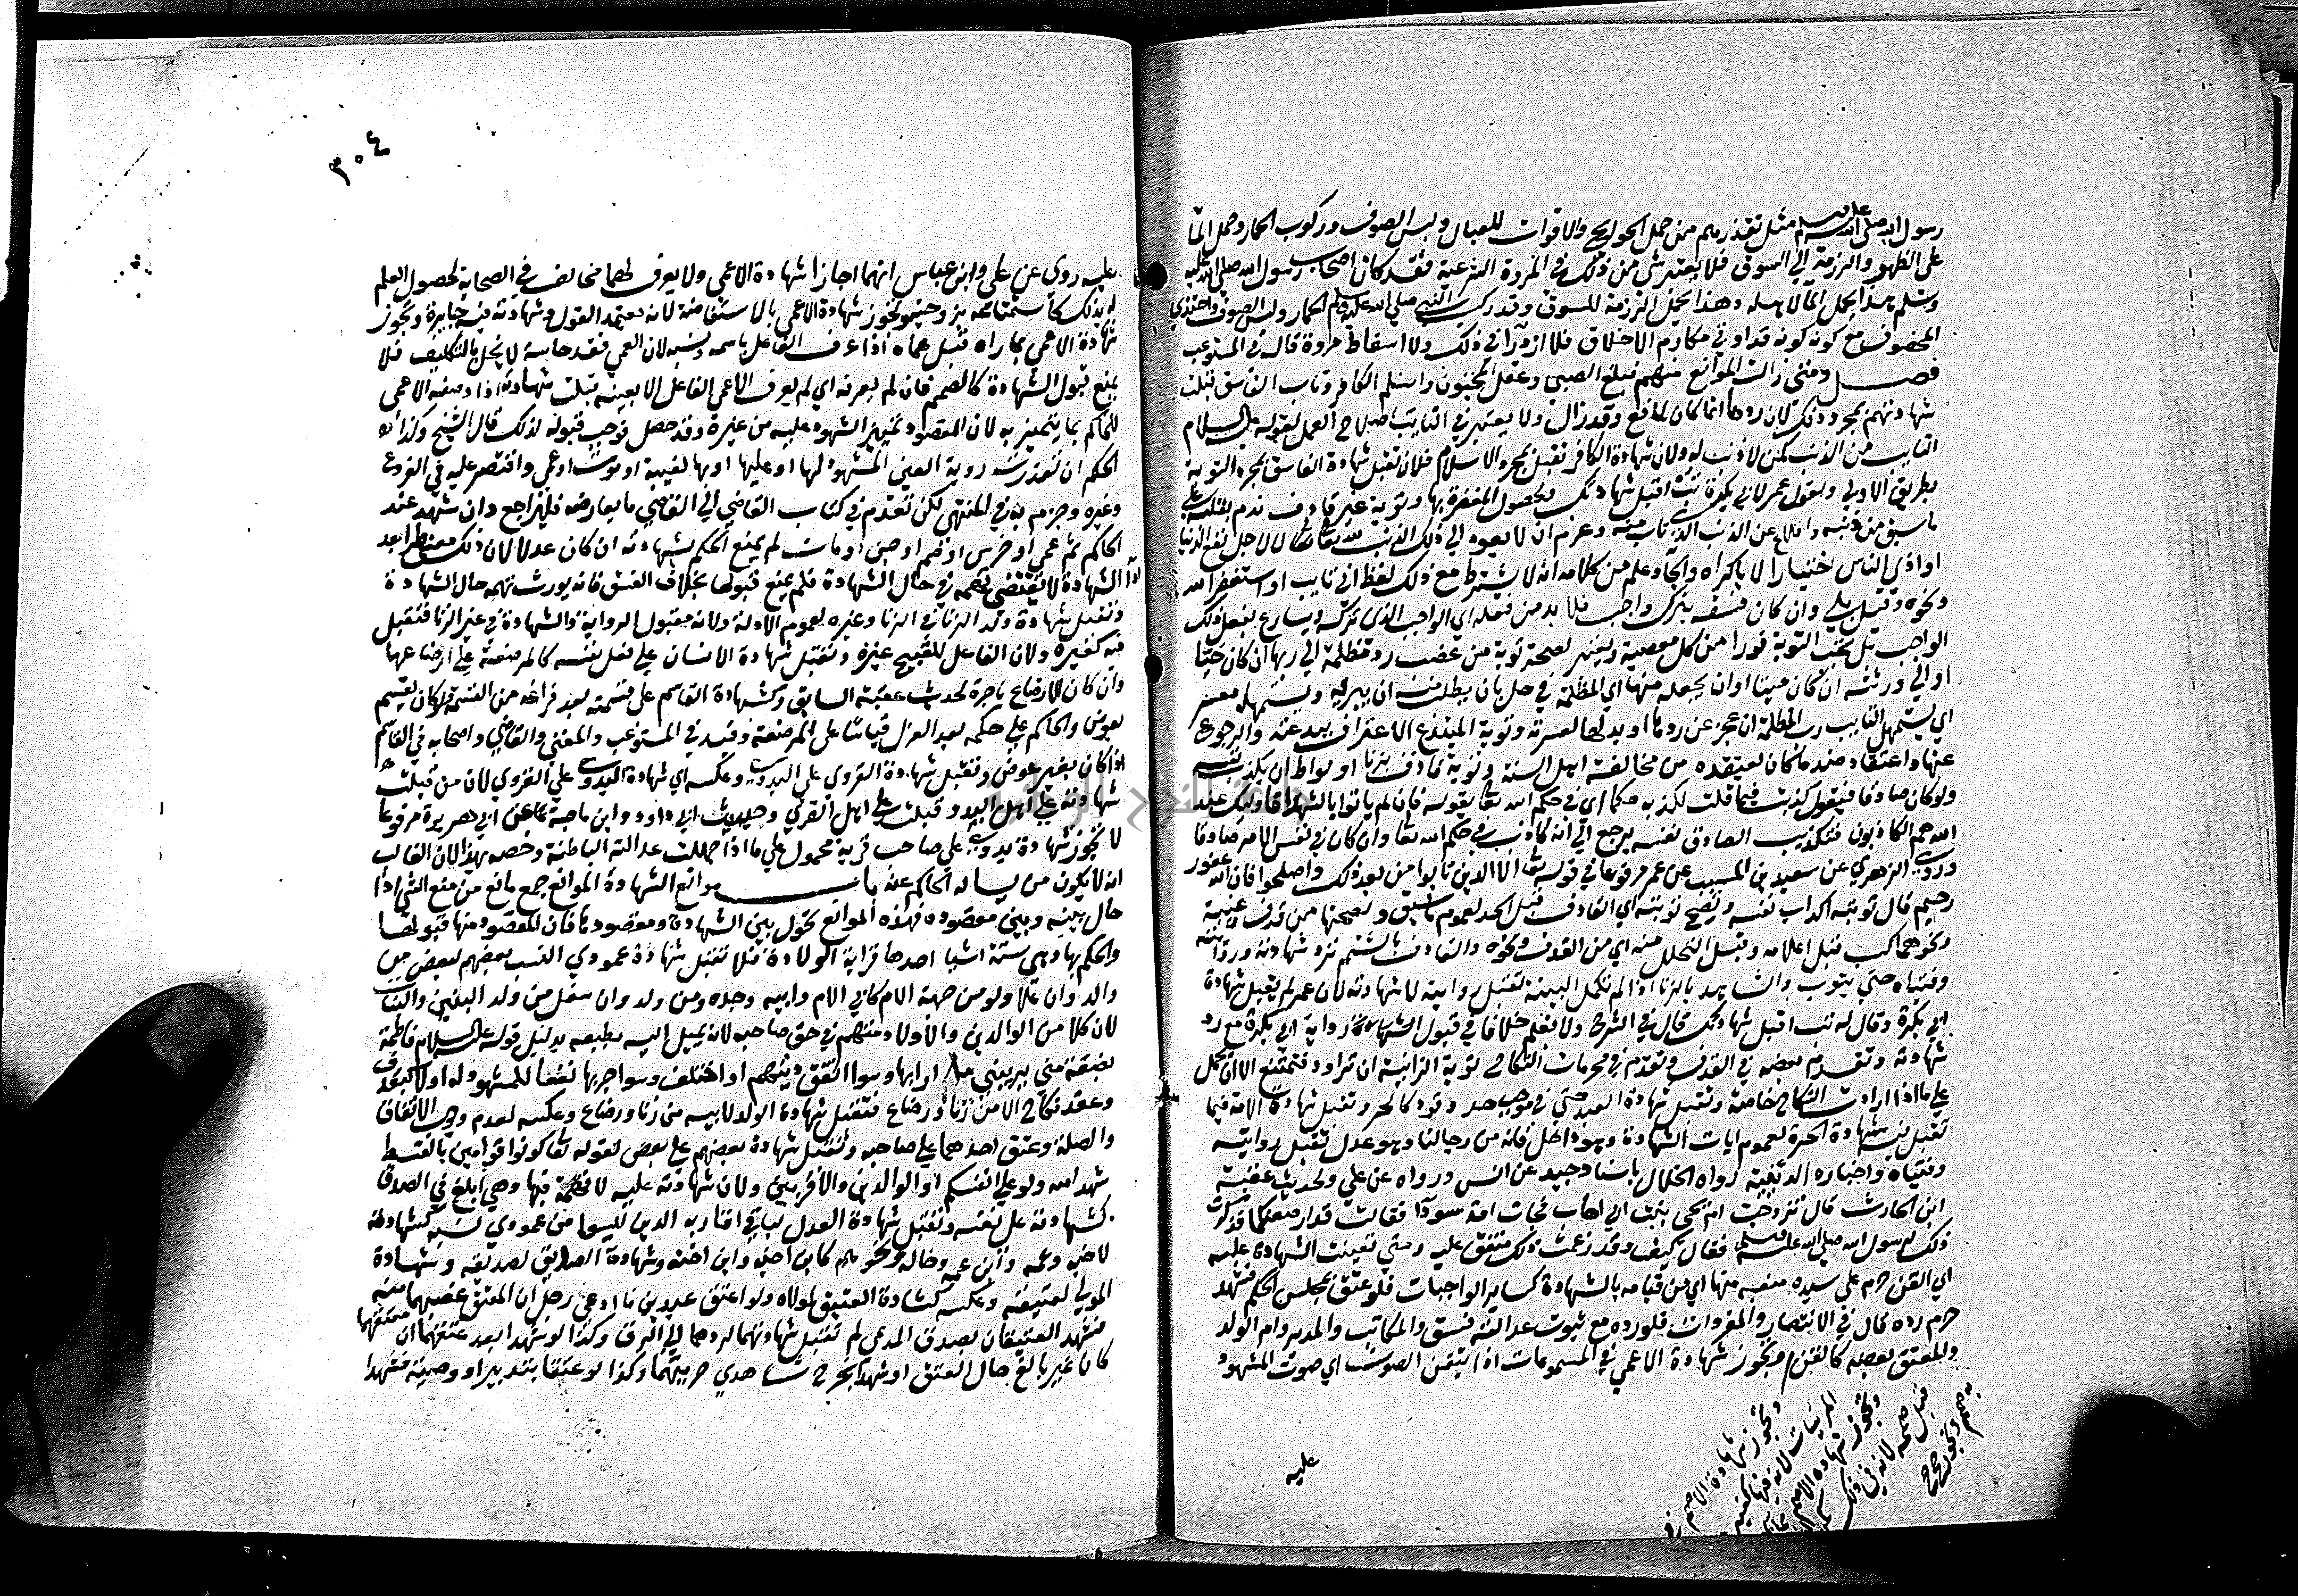 رسول الله صلى الله عليه وسلم مثل تقذرهم من حمل الحوايج والاقوات للعيال ولبس الصوف وركوب الحمار وحمل الما
على الظهر والرزمة الي السوق فلا يعتبر شي من ذلك في المروة الشرعية فقد كان اصحاب رسول الله صلى الله عليه
وسلم هذا يحمل الما لاهله وهذا يحمل الرزمة للسوق وقد ركب النبي صلى الله عليه وسلم الحمار ولبس الصوف واحتذي
المخصوف مع كونه قد اوتي مكارم الاخلاق فلا ازرآ في ذلك ولا اسقاط مروة قاله في المستوعب
فصل ومتى زالت الموانع منهم فبلغ الصبي وعقل المجنون واسلم الكافر وتاب الفاسق قبلت
شهادتهم بمجرد ذلك لان ردها انما كان لمانع وقد زال ولا يعتبر في التايب اصلاح العمل لقوله عليه السلام
التايب من الذنب كمن لا ذنب له ولان شهادة الكافر تقبل بمجرد الاسلام فلان تقبل شهادة الفاسق بمجرد التوبة
بطريق الاولى ولقول عمر لابي بكرة تب اقبل شهادتك ولحصول المغفرة بها وتوبة غير قاذف ندم بقلبه على
ما سبق من ذنبه واقلاع عن الذنب الذي تاب منه وعزم ان لا يعود الي ذلك الذنب لله تعالى لا لاجل نفع الدنيا
او اذي الناس اختيارا لا باكراه والجآء وعلم من كلامه انه لا يشترط مع ذلك لفظ اني تايب او استغفر الله
ونحوه وقيل بلى وان كان فسقه بترك واجب فلا بد من فعله اي الواجب الذي تركه ويسارع بفعل ذلك
الواجب بل تجب التوبة فورا من كل معصية ويعتبر لصحة توبة من غصب رد مظلمة الي ربها ان كان حيا
او الي ورثته ان كان ميتا او ان يجعله منها اي المظلمة في حل بان يطلب منه ان يبريه ويستمهله معسر
اي يستمهل التايب رب المظلمة ان عجز عن ردها او بدلها لعسرته وتوبة المبتدع الاعتراف ببدعته والرجوع
عنها واعتقاد ضد ما كان يعتقده من مخالفة اهل السنة وتوبة قاذف بزنا او لواط ان يكذب نفسه
ولو كان صادقا فيقول كذبت فيما قلت لكذبه حكما اي في حكم الله تعالى بقوله فان لم ياتوا بالشهدا فاوليك عند
الله هم الكاذبون فتكذيب الصادق نفسه يرجع الي انه كاذب في حكم الله تعالى وان كان في نفس الامر صادقا
وروي الزهري عن سعيد بن المسيب عن عمر مرفوعا في قوله تعالى الا الذين تابوا من بعد ذلك واصلحوا فان الله غفور
رحيم قال توبته اكذاب نفسه وتصح توبته اي القاذف قبل الحد لعموم ما سبق وتصحتها من قذف وغيبة
ونحوهما قبل اعلامه وقبل التحلل منه اي من القذف ونحوه والقاذف بالشتم ترد شهادته وروايته
وفتياه حتى يتوب والشاهد بالزنا اذا لم تكمل البينة تقبل روايته لا شهادته لان عمر لم يقبل شهادة
ابي بكرة وقال له تب اقبل شهادتك قال في الشرح ولا نعلم خلافا في قبول رواية ابي بكرة مع رد
شهادته وتقدم بعضه في القذف وتقدم في محرمات النكاح توبة الزانية ان تراود فتمتنع الا ان تحمل
على ما اذا ارادت النكاح خاصة وتقبل شهادة العبد حتى في موجب حد وقود كالحر وتقبل شهادة الامة فيما
تقبل فيه شهادة الحرة لعموم ايات الشهادة وهو داخل فانه من رجالنا وهو عدل تقبل روايته
وفتياه واخباره الدينية رواه الخلال باسناد جيد عن انس ورواه عن علي ولحديث عقبة
ابن الحارث قال تزوجت ام يحيى بنت ابي اهاب فجات امة سودآ فقالت قد ارضعتكما فذكرت
ذلك لرسول الله صلى الله عليه وسلم فقال كيف وقد زعمت ذلك متفق عليه ومتى تعينت الشهادة عليه
اي القن حرم على سيده منعه منها اي من قيامه بالشهادة كساير الواجبات فلو عتق بمجلس الحكم فشهد
حرم رده قال في الانتصار والمفردات فلو رده مع ثبوت عدالته فسق والمكاتب والمدبر وام الولد
والمعتق بعضه كالقن وتجوز شهادة الاعمى في المسموعات اذا تيقن الصوت اي صوت المشهود
وتجوز شهادة الاصم في
المرئيات
وتجوز شهادة الاصم
قبل صممه لانه في ذلك
عليه
٣٠٤
عليه روي عن علي وابن عباس انهما اجازا شهادة الاعمى ولا يعرف لهما مخالف في الصحابة لحصول العلم
له بذلك كاستمتاعه بزوجته وتجوز شهادة الاعمى بالاستفاضة لانه يعتمد القول وشهادته فيه جايزة وتجوز
شهادة الاعمى بما راه قبل عماه اذا عرف الفاعل باسمه ونسبه لان العمى فقد حاسة لا يخل بالتكليف فلا
يمنع قبول الشهادة كالصمم فان لم يعرفه اي لم يعرف الاعمى الفاعل الا بعينه قبلت شهادته اذا وصفه الاعمى
للحاكم بما يتميز به لان المقصود تمييز المشهود عليه من غيره وقد حصل فوجب قبوله لذلك قال الشيخ وكذا
الحكم ان تعذرت روية العين المشهود لها او عليها او بها لغيبة او موت او عمى واقتصر عليه في الفروع
وغيره وجزم به في المنتهى لكن تقدم في كتاب القاضي الي القاضي ما يعارضه فليراجع وان شهد عند
الحاكم ثم عمي او خرس او صم او جن او مات لم يمنع الحكم بشهادته ان كان عدلا لان ذلك معنى طرا بعد
ادآ الشهادة لا يقتضي تهمة في حال الشهادة فلم يمنع قبولها بخلاف الفسق فانه يورث تهمة حال الشهادة
وتقبل شهادة ولد الزنا في الزنا وغيره لعموم الادلة ولانه مقبول الرواية والشهادة في غير الزنا فتقبل
فيه كغيره ولان الفاعل للقبيح غيره وتقبل شهادة الانسان على فعل نفسه كالمرضعة على ارضاعها
وان كان الارضاع باجرة لحديث عقبة السابق وكشهادة القاسم على قسمته بعد فراغه من القسمة ولو كان يقسم
بعوض والحاكم على حكمه بعد العزل قياسا على المرضعة وقيد في المستوعب والمغني والقاضي واصحابه في القاسم
اذا كان بغير عوض وتقبل شهادة القروي على البدوي وعكسه اي شهادة البدوي على القروي لان من قبلت
شهادته على اهل البدو قبلت على اهل القرى وحديث ابي داود وابن ماجه عن ابي هريرة مرفوعا
لا تجوز شهادة بدوي على صاحب قرية محمول على ما اذا جهلت عدالته الباطنة وخصه بهذا لان الغالب
انه لا يكون من يساله الحاكم عنه باب موانع الشهادة الموانع جمع مانع من منع الشي اذا
حال بينه وبين مقصوده فهذه الموانع تحول بين الشهادة ومقصودها فان المقصود منها قبولها
والحكم بها وهي ستة اشيا احدها قرابة الولادة فلا تقبل شهادة عمودي النسب بعضهم لبعض من
والد وان علا ولو من جهة الام كابي الام وابيه وجده ومن ولد وان سفل من ولد البنين والبنات
لان كلا من الوالدين والاولاد متهم في حق صاحبه لانه يميل اليه بطبعه بدليل قوله عليه السلام فاطمة
بضعة مني يريبني ما ارابها وسوا اتفق دينهم او اختلف وسوا جر بها نفعا للمشهود له او لا كقذف
وعقد نكاح الا من زنا ورضاع فتقبل شهادة الولد لابيه من زنا ورضاع وعكسه لعدم وجوب الانفاق
والصلة وعتق احدهما على صاحبه وتقبل شهادة بعضهم على بعض لقوله تعالى كونوا قوامين بالقسط
شهدا لله ولو على انفسكم او الوالدين والاقربين ولان شهادته عليه لا تهمة فيها وهي ابلغ في الصدق
كشهادته على نفسه وتقبل شهادة العدل لباقي اقاربه الذين ليسوا من عمودي نسبه كشهادته
لاخيه وعمه وابن عمه وخاله ونحوهم كابن اخيه وابن اخته وشهادة الصديق لصديقه وشهادة
المولي لعتيقه وعكسه كشهادة العتيق لمولاه ولو اعتق عبدين فادعى رجل ان المعتق غصبهما منه
فشهد العتيقان بصدق المدعي لم تقبل شهادتهما لردهما الي الرق وكذا لو شهدا بعد عتقهما ان معتقهما
كان غير بالغ حال العتق او شهدا بجرح شاهدي حريتهما وكذا لو عتقا بتدبير او وصية فشهدا